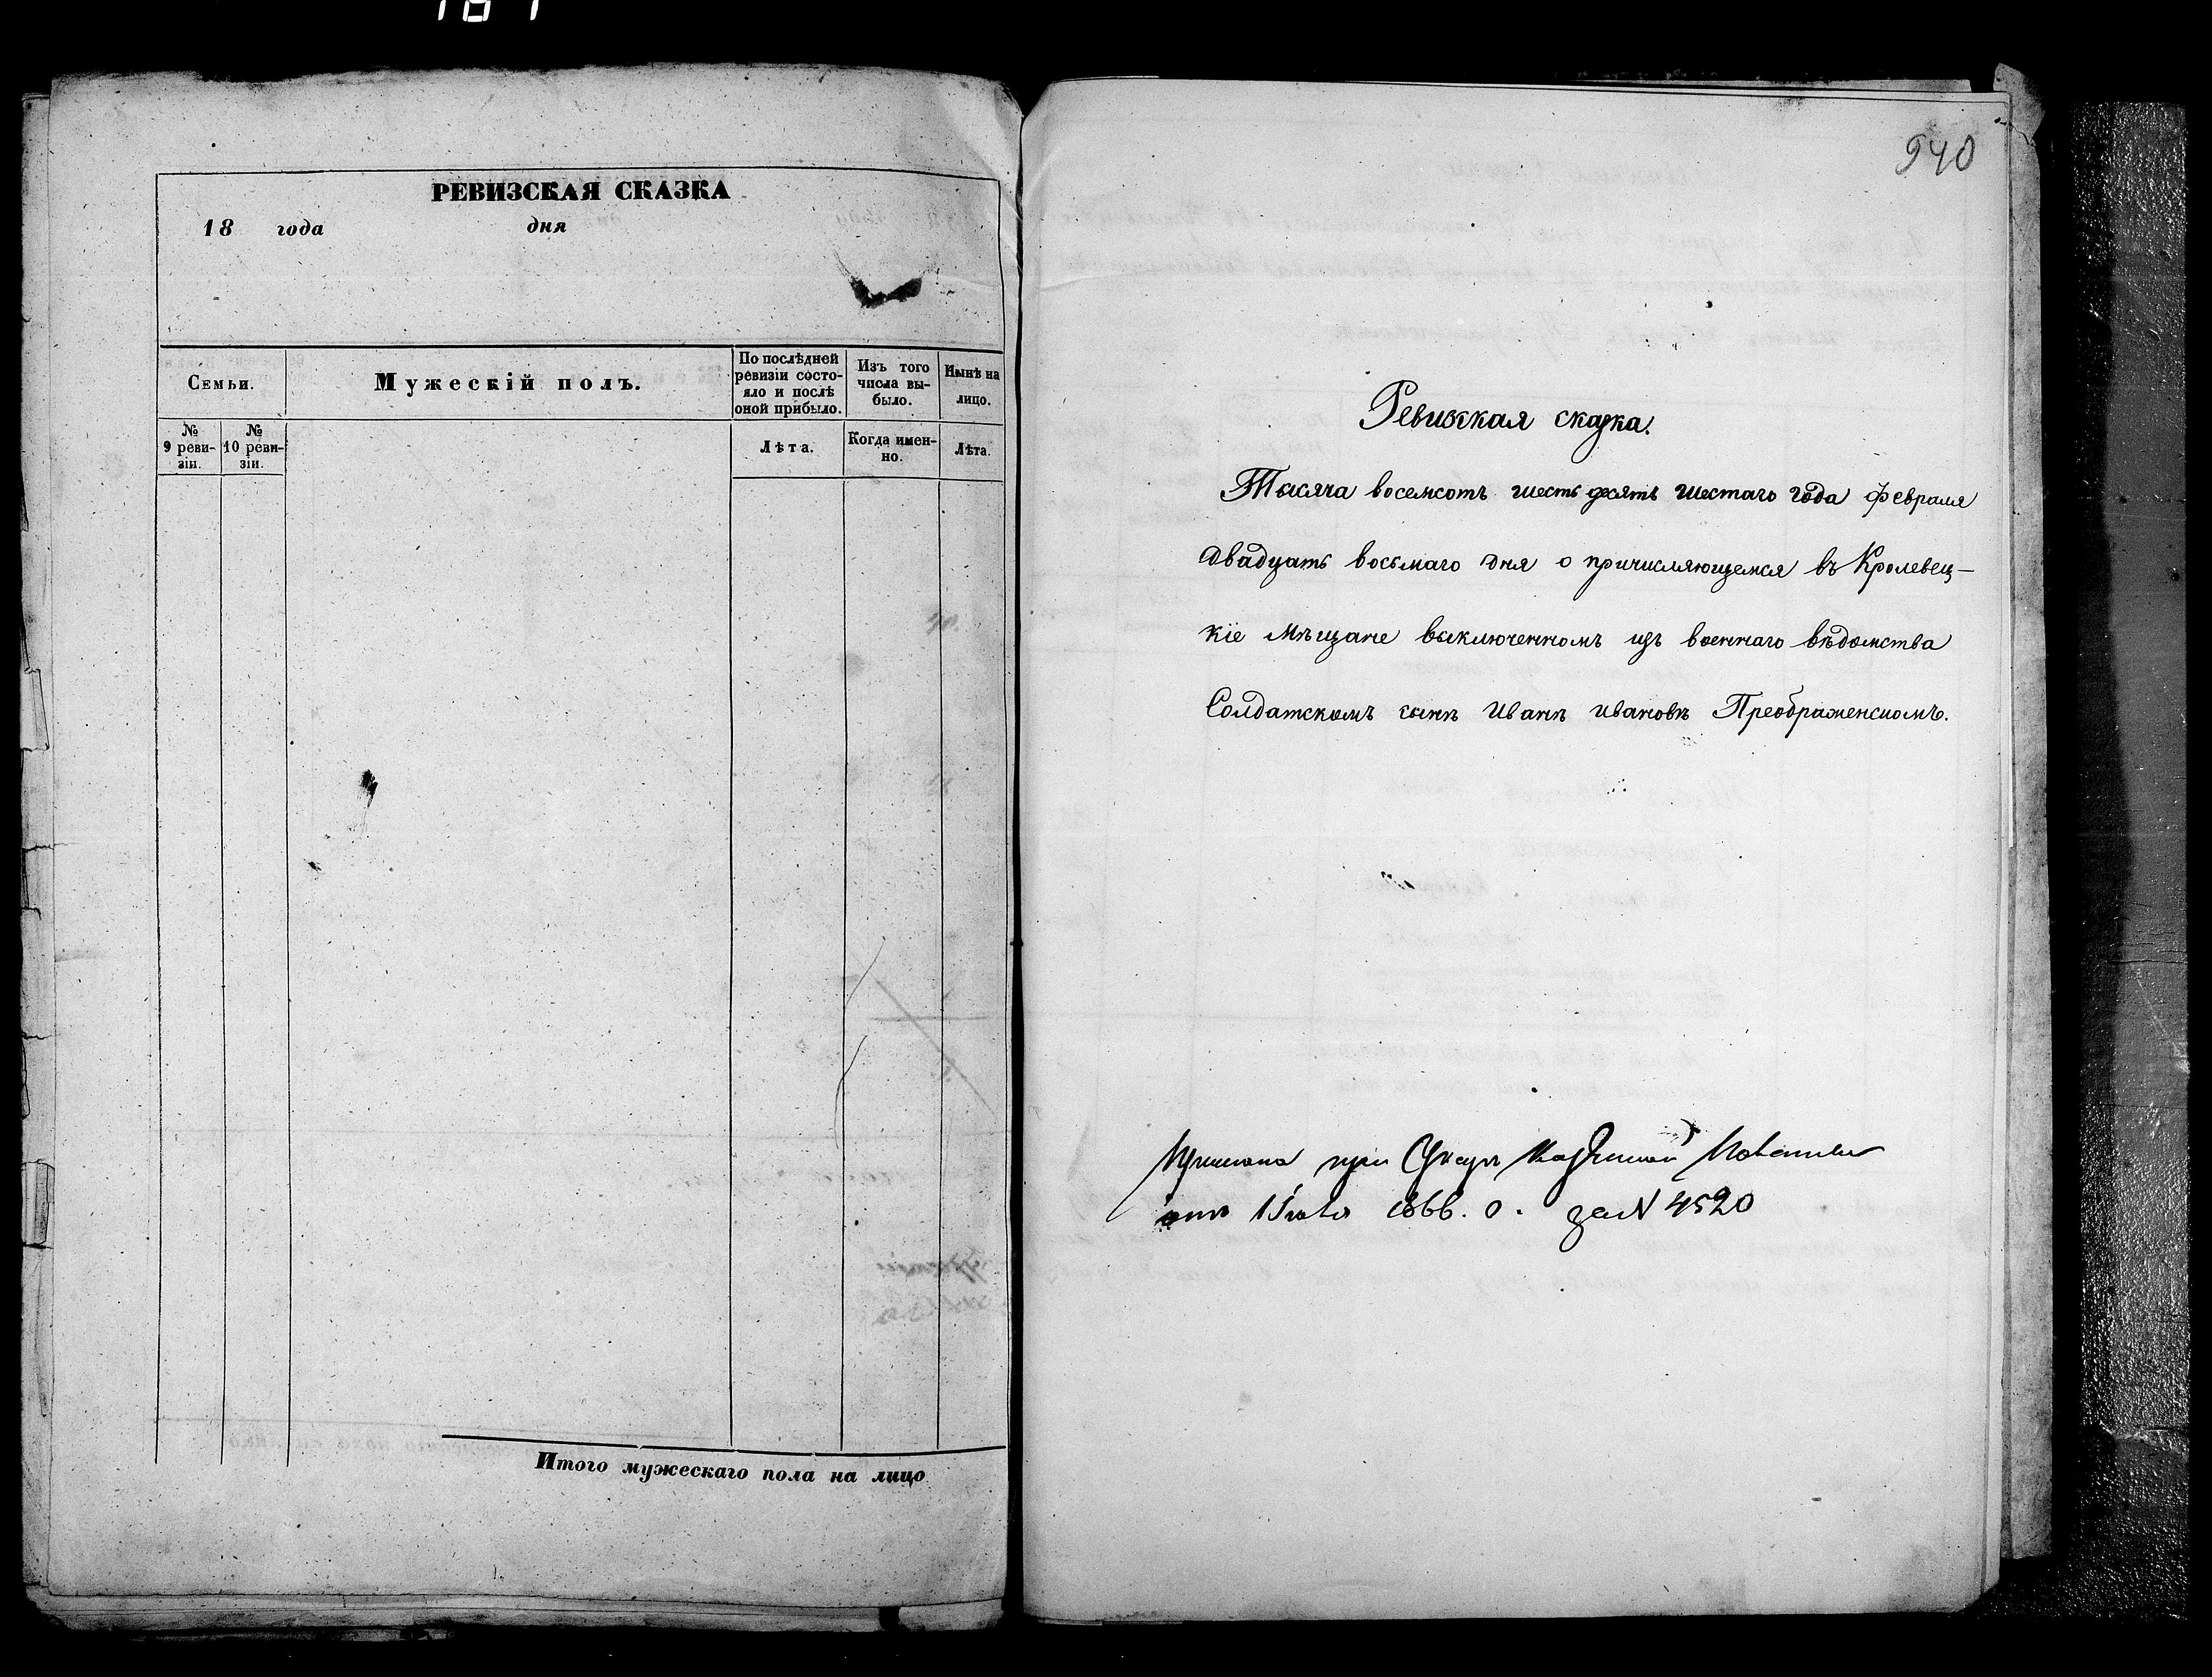 РЕВИЗСКАЯ СКАЗКА
18 года дня
Семьи.
Мужескій полъ.
По послѣдней
ревизіи состо-
яло и послѣ
оной прибыло.
Изъ того
числа вы-
было.
Нынѣ на
лицо.
№
9 реви-
зіи.
№
10 реви-
зіи.
Лѣта.
Когда имен-
но.
Лѣта.
Итого мужескаго пола на лицо
940
Ревизская сказка.
Тысяча восемсотъ шестьдесятъ шестаго года февраля
двадцать восьмаго дня о причисляющемся въ Кролевец-
кіе мѣщане выключенномъ изъ военнаго вѣдомства
Солдатскомъ сынѣ Иванѣ Ивановѣ Преображенскомъ.
при Указѣ Казенной Палаты
отъ 1866. г. за N 4520